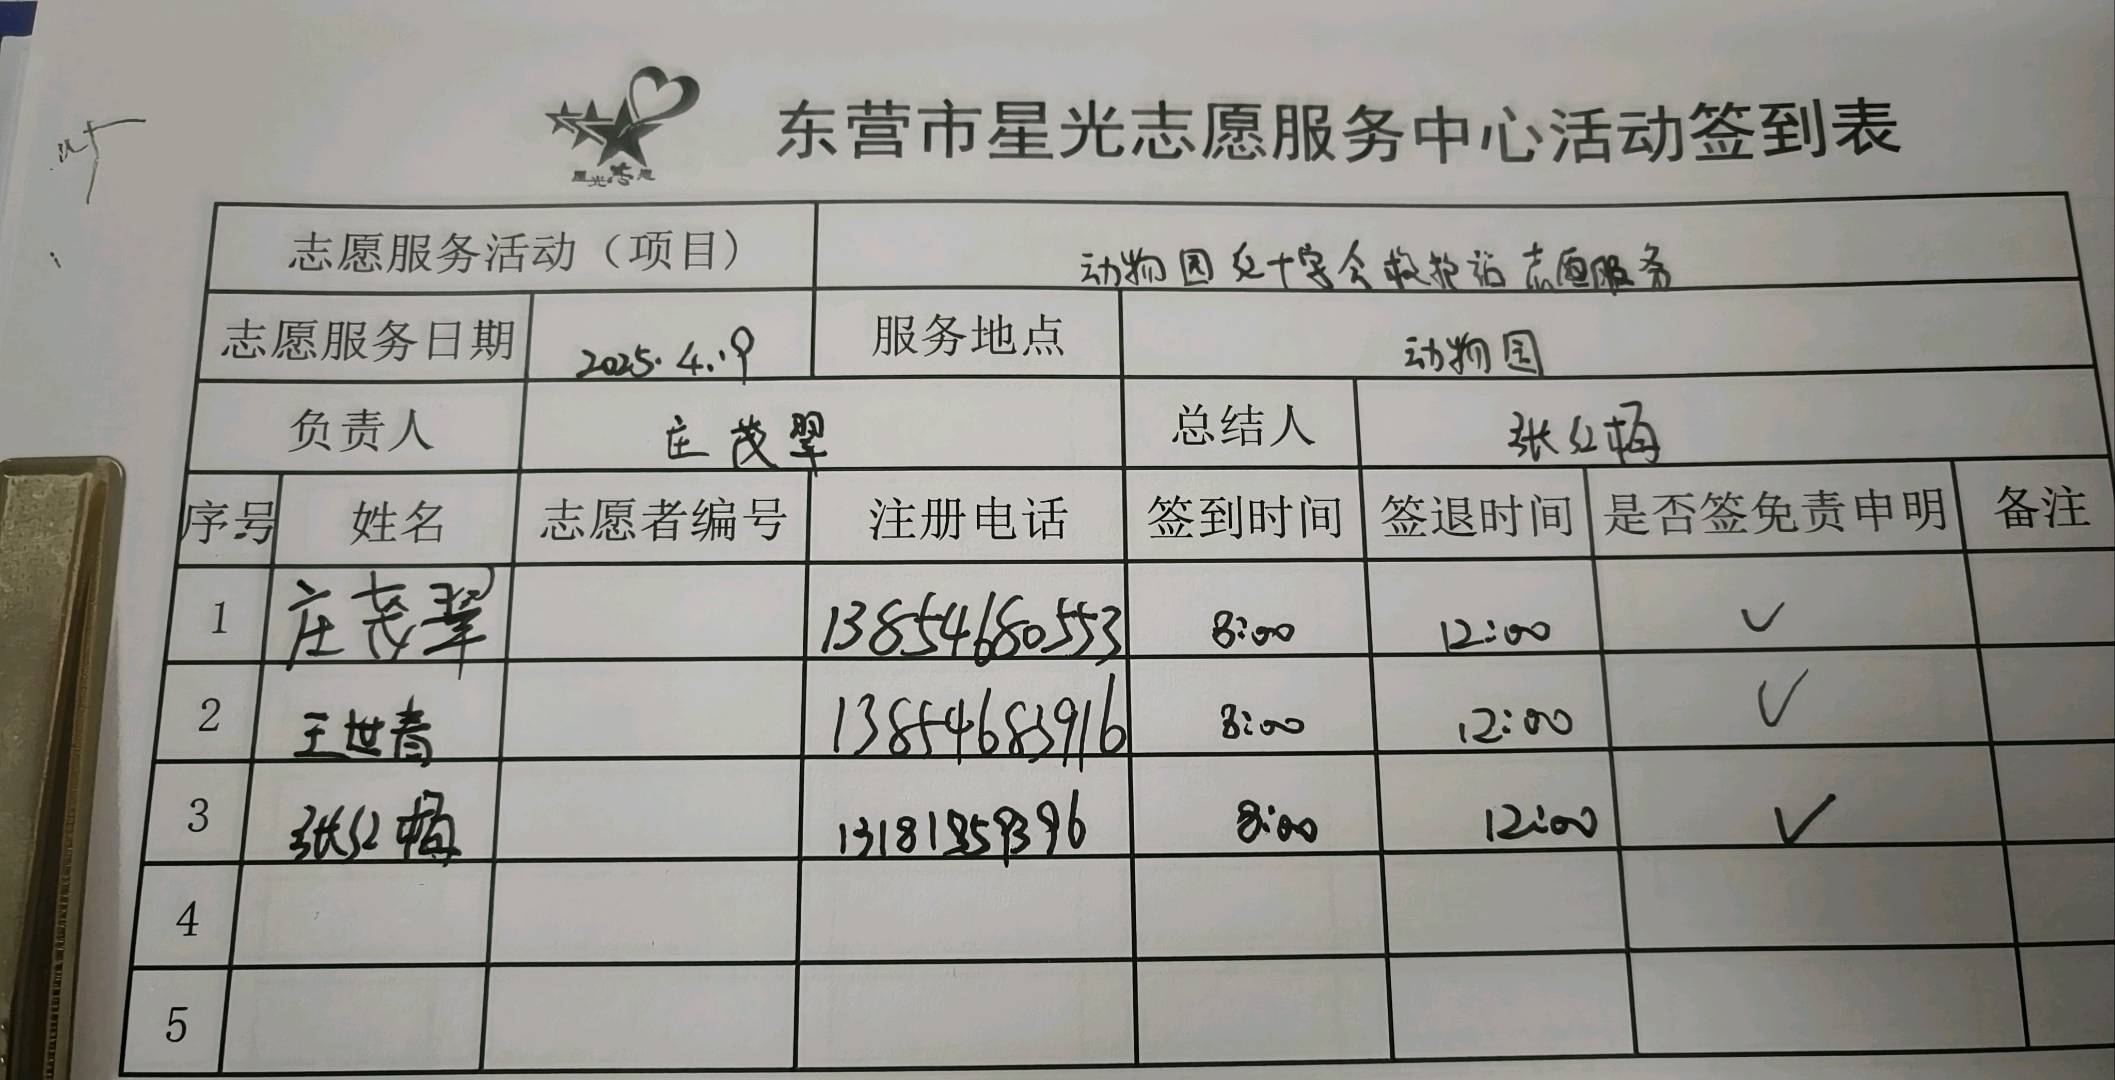 星光志愿
东营市星光志愿服务中心活动签到表
志愿服务活动（项目） 动物园红十字会救护站志愿服务
志愿服务日期 2025.4.19 服务地点 动物园
负责人 庄茂翠 总结人 张红梅
序号 姓名 志愿者编号 注册电话 签到时间 签退时间 是否签免责申明 备注
1 庄茂翠 13854680553 8:00 12:00 ✓
2 王世春 13854683916 8:00 12:00 ✓
3 张红梅 8:00 12:00 ✓
4
5